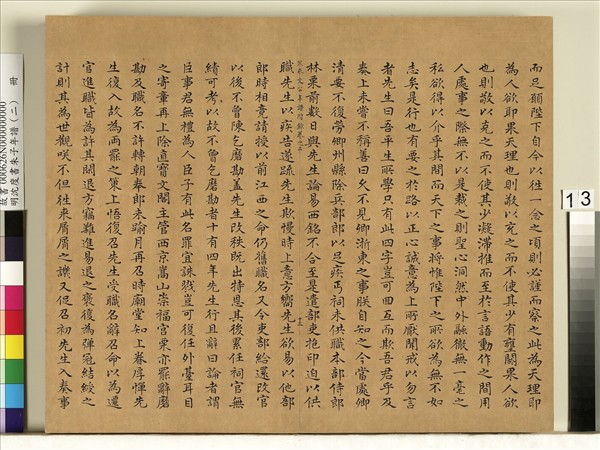 而足願陛下自今以往一念之頃則必謹而察之此為天理耶
為人欲耶果天理也則敬以充之而不使其少有壅閼果人欲
也則敬以克之而不使其少凝滯推而至於言語動作之間用
人處事之際無不以是裁之則聖心洞然中外融徹無一毫之
私欲得以介乎其間而天下之事將惟陛下之所欲為無不如
志矣是行也有要之於路以正心誠意為上所厭聞戒以勿言
者先生曰吾平生所學只有此四字豈可回互而欺吾君乎及
奏上未嘗不稱善曰久不見卿浙東之事朕自知之今當處卿
清要不復勞卿州縣除兵部郎以足疾丐祠未供職本部侍郎
林栗前數日與先生論易西銘不合至是遣部吏抱印迫以供
職先生以疾告遂疏先生欺慢時上意方嚮先生欲易以他部
郎時相竟請授以前江西之命仍舊職名又令吏部給還改官
以後不曾陳乞磨勘蓋先生改秩既出特恩其後累任祠官無
績可考以故不曾乞磨勘者十有四年先生行且辭曰論者謂
臣事君無禮為人臣子有此名罪宜誅戮豈可復任外臺耳目
之寄章再上除直寶文閣主管西京嵩山崇福宮栗亦罷辭磨
勘及職名不許轉朝奉郎未踰月再召時廟堂知上眷厚憚先
生復入故為兩罷之策上悟復召先生受職名辭召命以為遷
官進職皆為許其閒退方竊難進易退之褒復為彈冠結綬之
計則其為世觀咲不但往來屑屑之譏又促召初先生入奏事
宋朱文公年譜附錄卷之下
十三
故書000626N000000000
明沈度書朱子年譜(二)
冊
13